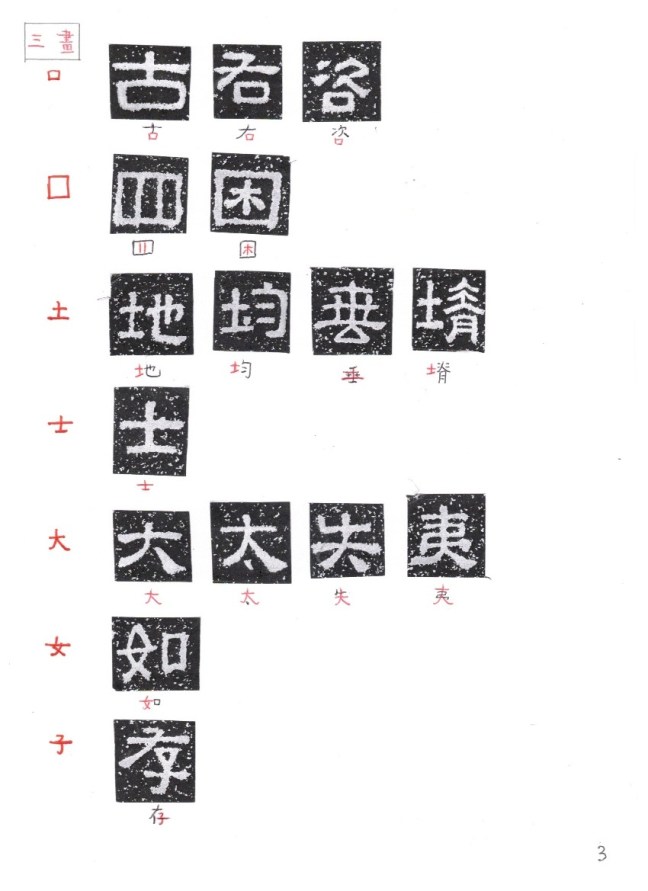 三畫
口 古 右 咨
古 右 咨
囗 四 困
四 困
土 地 均 垂 塉
地 均 垂 塉
士 士
士
大 大 太 失 夷
大 太 失 夷
女 如
如
子 存
存
3